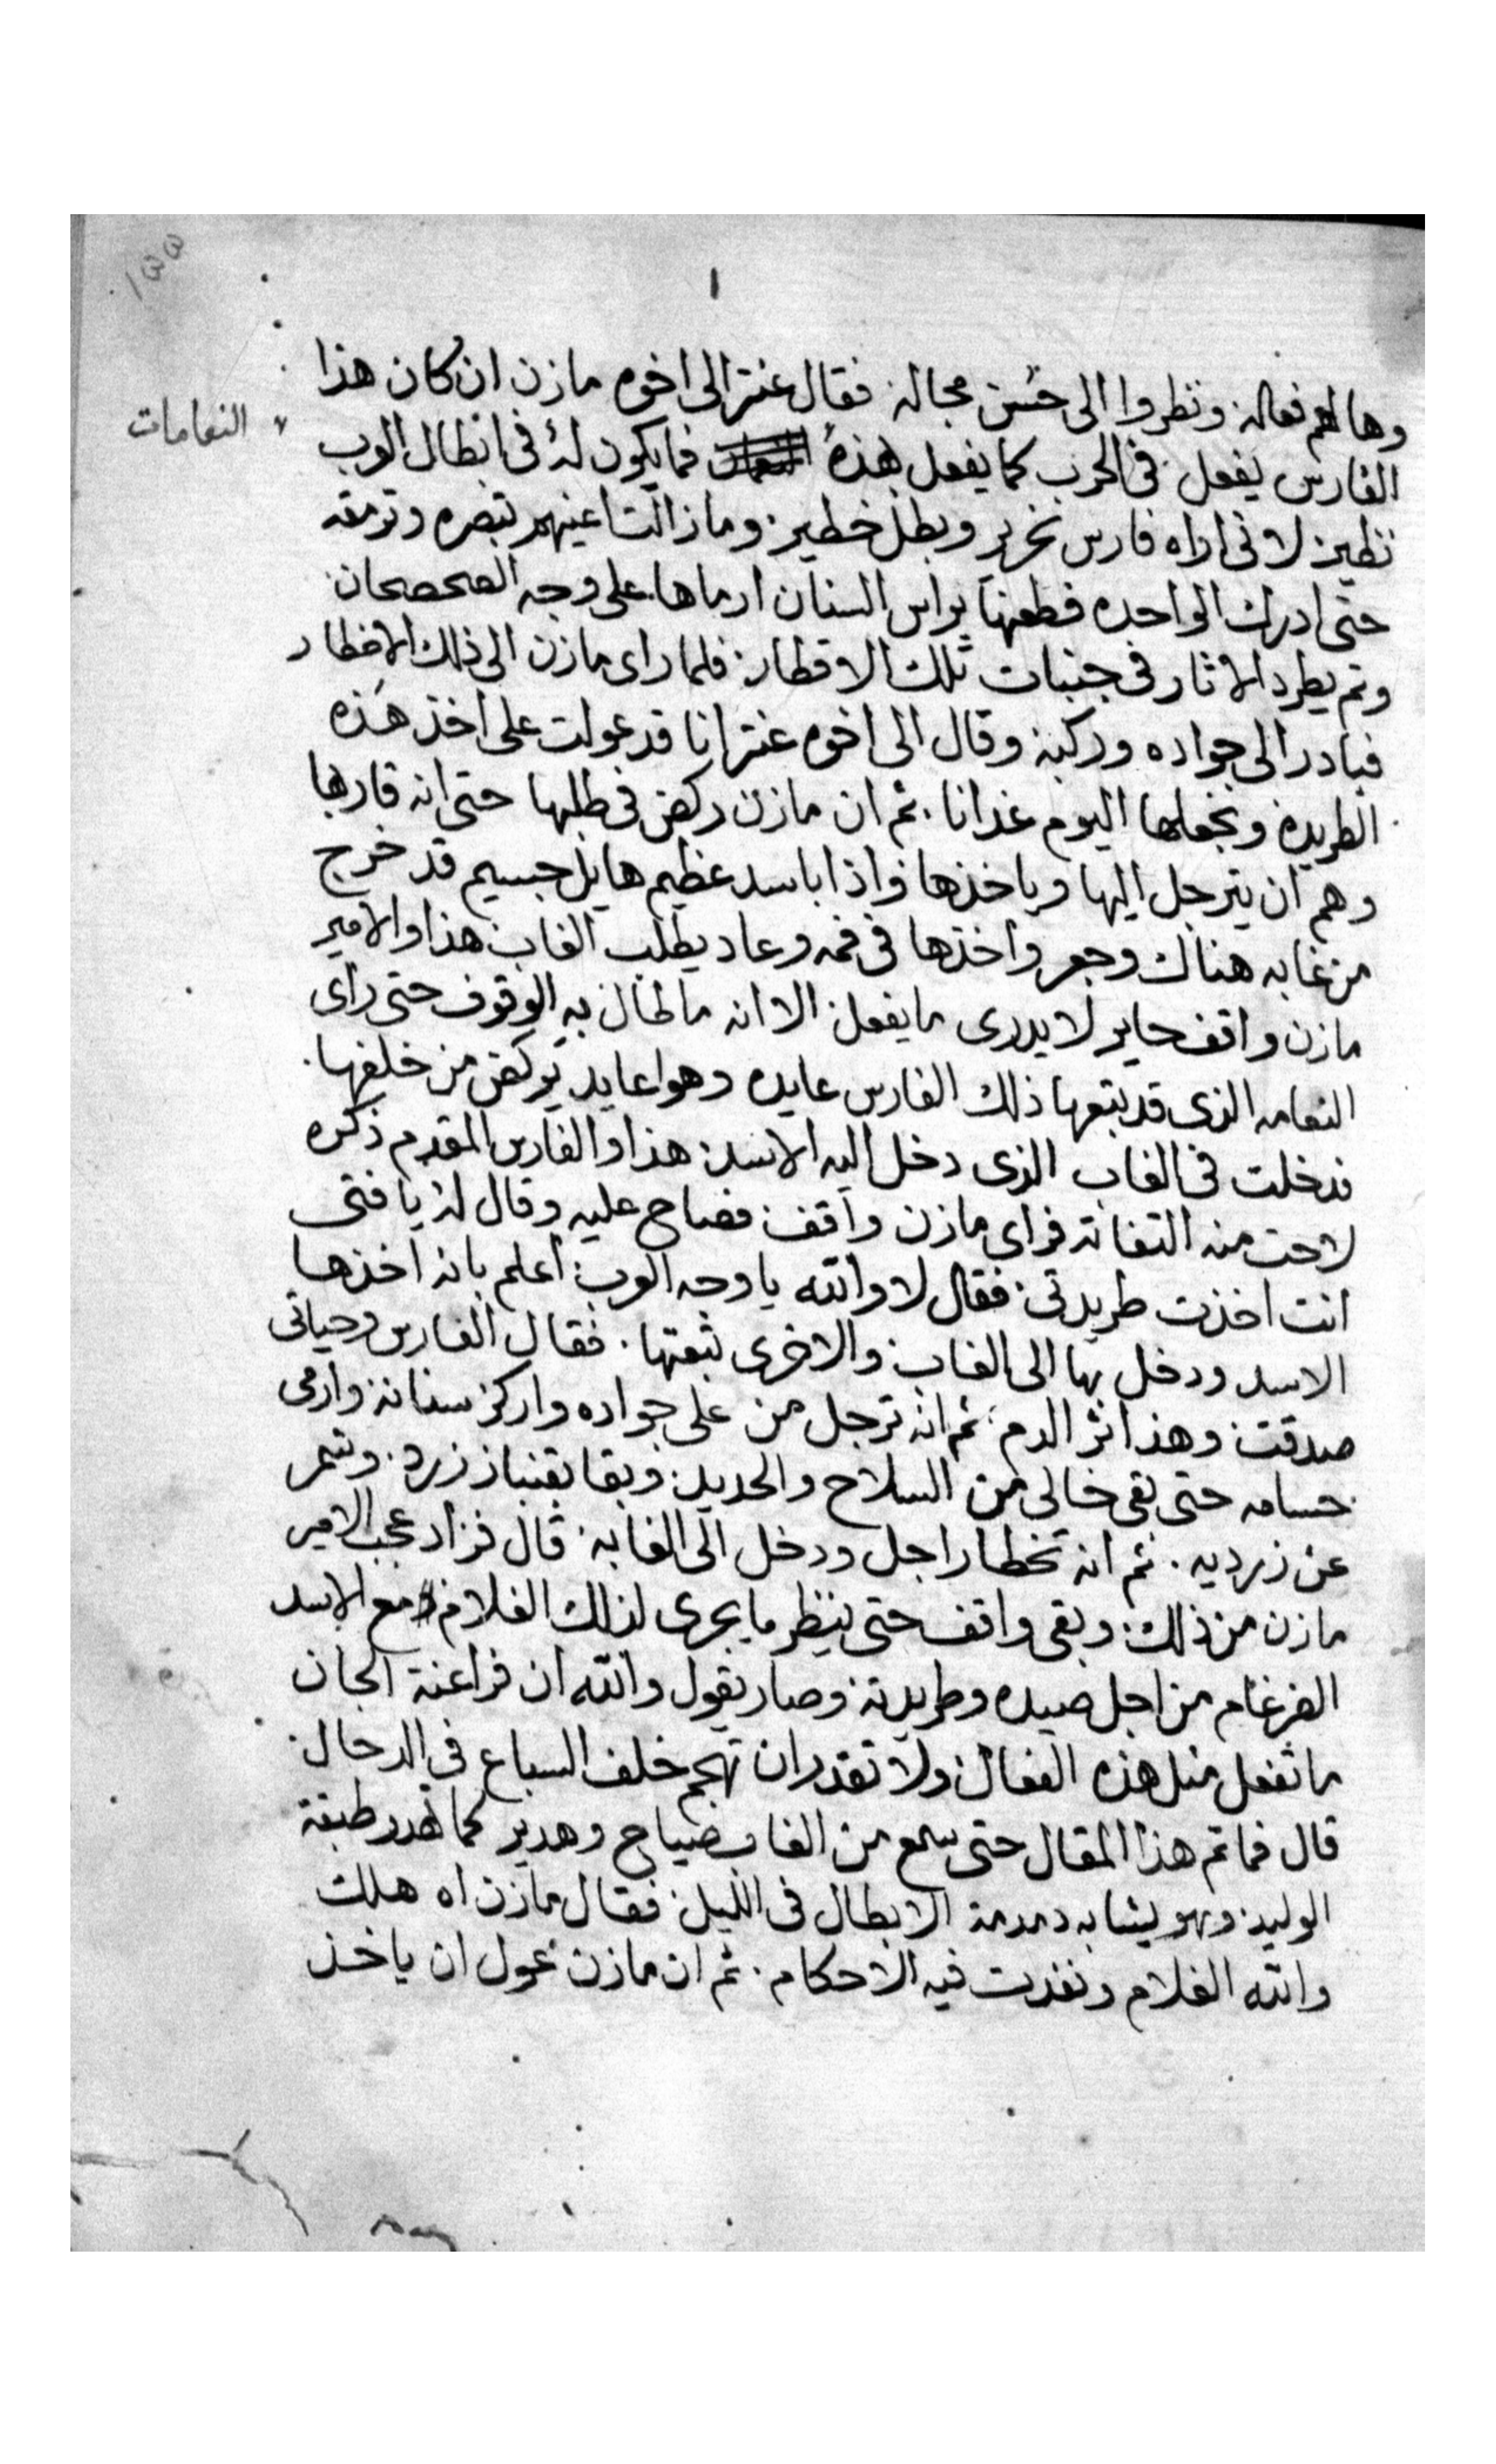 ١
وهالهم فعاله ونظروا الى حُسن مجاله فقال عنتر الى اخوه مازن ان كان هذا
الفارس يفعل في الحرب كما يفعل بهذه فما يكون له في ابطال العرب
النعامات
نظير لاني اراه فارس نحرير وبطل خطير وما زالت اعينهم تبصره وترمقه
حتى ادرك الواحده فطعنها براس السنان ارماها على وجه الصحصحان
وتم يطرد الاثار في جنبات تلك الاقطار فلما راى مازن الى ذلك الاخطار
فبادر الى جواده وركبه وقال الى اخوه عنتر انا قد عولت على اخذ هذه
الطريده ونجعلها اليوم غدانا ثم ان مازن ركض في طلبها حتى انه قاربها
وهم ان يترجل اليها وياخذها واذا باسد عظيم هايل جسيم قد خرج
من غابه هناك وجعر واخذها في فمه وعاد يطلب الغاب هذا والامير
مازن واقف حاير لا يدري ما يفعل الا انه ما طال به الوقوف حتى راى
النعامه الذي قد تبعها ذلك الفارس عايده وهوا عايد يركض من خلفها
فدخلت في الغاب الذي دخل اليه الاسد هذا والفارس المقدم ذكره
لاحت منه التفاته فراى مازن واقف فصاح عليه وقال له يا فتى
انت اخذت طريدتي فقال لا والله يا وجه العرب اعلم بانه اخذها
الاسد ودخل بها الى الغاب والاخرى تبعتها فقال الفارس وحياتي
صدقت وهذا اثر الدم ثم انه ترجل من على جواده واركز سنانه وارمى
حسامه حتى بقى خالي من السلاح والحديد وبقا بقنباز زرد وشمر
عن زنديه ثم انه تخطا راجل ودخل الى الغابه قال فزاد عجب الامير
مازن من ذلك وبقى واقف حتى ينظر ما يجرى لذلك الغلام مع الاسد
الضرغام من اجل صيده وطريدته وصار يقول والله ان فراعنة الجان
ما تفعل مثل هذه الفعال ولا تقدر ان تهجم خلف السباع في الدحال
قال فما تم هذا المقال حتى سمع من الغاب صياح وهدير كما تهدر طبقة
الوليد وهو يشابه دمدمة الابطال في الليل فقال مازن اه هلك
والله الغلام ونفدت فيه الاحكام ثم ان مازن عول ان ياخذ